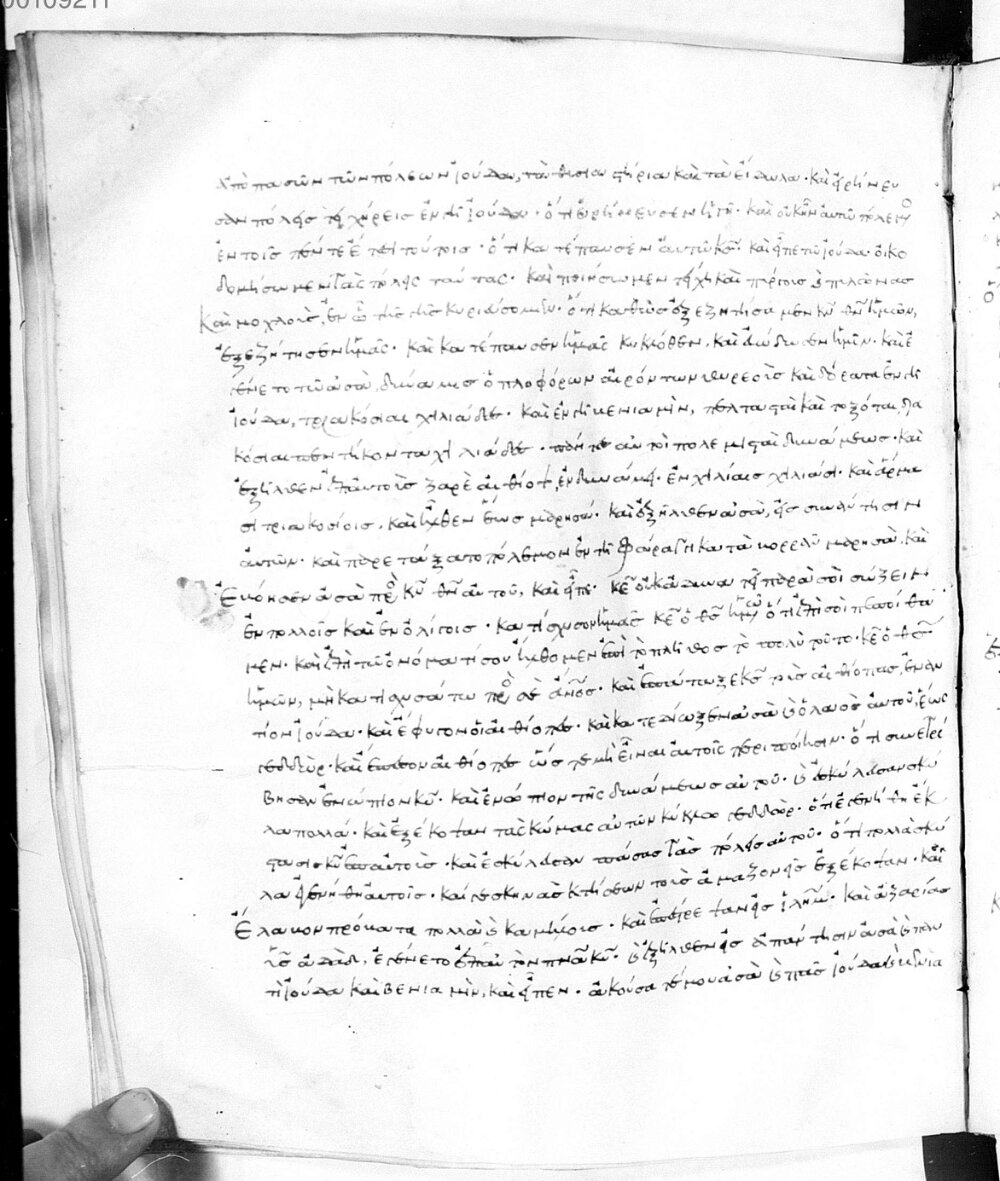 00109211
ἀπὸ πασῶν τῶν πόλεων ἰούδα, τὰ θυσιαστήρια καὶ τὰ εἴδωλα· καὶ εἰρήνευ
σαν πόλεις τειχήρεις ἐν τῆ ἰούδα· ὅτι εἰρήνευσεν ἡ γῆ· καὶ οὐκ ἦν αὐτῶ πόλεμος
ἐν τοῖς ἔτεσι τούτοις· ὅτι κατέπαυσεν αὐτῶ κς· καὶ εἶπε τῶ ἰούδα· οἰκο
δομήσωμεν τὰς πόλεις ταύτας· καὶ ποιήσωμεν τείχη καὶ πύργοις καὶ πύλας
καὶ μοχλοῖς, ἐν ὧ τῆς γῆς κυριεύσομεν· ὅτι καθὼς ἐξεζητήσαμεν κν θν ἡμῶν,
ἐξεζήτησεν ἡμᾶς· καὶ κατέπαυσεν ἡμᾶς κυκλόθεν, καὶ εὐώδωσεν ἡμῖν· καὶ ἐ
γένετο τῶ ἀσὰ, δύναμις ὁπλοφόρων αἰρόντων θυρεοὺς καὶ δόρατα ἐν τῆ
ἰούδα, τριακόσιαι χιλιάδες· καὶ ἐν τῆ βενιαμὶν, πελτασταὶ καὶ τοξόται, δια
κόσιαι πεντήκοντα χιλιάδες· πάντες αὐτοὶ πολεμισταὶ δυνάμεως· καὶ
ἐξῆλθεν ἐπ' αὐτοὺς ζαρὲ ὁ αἰθίοψ, ἐν δυνάμει· ἐν χιλίαις χιλιάσι· καὶ ἅρμα
σι τριακοσίοις, καὶ ἦλθεν ἕως μαρησά· καὶ ἐξῆλθεν ἀσὰ, εἰς συνάντησιν
αὐτῶν· καὶ παρετάξατο πόλεμον ἐν τῆ φάραγγι κατὰ βορρᾶν μαρησὰ, καὶ
ἐβόησεν ἀσὰ πρὸς κν θν αὐτοῦ, καὶ εἶπε· κε οὐκ ἀδυνατεῖ παρὰ σοὶ σώζειν
ἐν πολλοῖς καὶ ἐν ὀλίγοις· κατίσχυσον ἡμᾶς κε ὁ θς ἡμῶν ὅτι ἐπὶ σοὶ πεποίθα
μεν· καὶ ἐπὶ τῶ ὀνόματί σου ἤλθομεν ἐπὶ τὸ πλῆθος τὸ πολὺ τοῦτο· κε ὁ θς
ἡμῶν, μὴ κατισχυσάτω πρὸς σὲ ἄνος· καὶ ἐπάταξε κς τοὺς αἰθίοπας, ἐναν
τίον ἰούδα· καὶ ἔφυγον οἱ αἰθίοπες· καὶ κατεδίωξεν ἀσὰ καὶ ὁ λαὸς αὐτοῦ, ἕως
γεδδώρ· καὶ ἔπεσον αἰθίοπες ὥστε μὴ εἶναι αὐτοῖς περιποίησιν· ὅτι συνετρί
βησαν ἐνώπιον κυ· καὶ ἐναντίον τῆς δυνάμεως αὐτοῦ· καὶ ἐσκύλευσαν σκῦ
λα πολλά· καὶ ἐξέκοψαν τὰς κώμας αὐτῶν κύκλω γεδδώρ· ὅτι ἐγενήθη ἔκ
στασις κυ ἐπ' αὐτοὺς· καὶ ἐσκύλευσαν πάσας τὰς πόλεις αὐτοῦ· ὅτι πολλὰ σκῦ
λα ἐγενήθη αὐτοῖς· καί γε σκηνὰς κτήσεων τοὺς ἀμαζονεῖς ἐξέκοψαν· καὶ
ἔλαβον πρόβατα πολλὰ καὶ καμήλους· καὶ ἐπέστρεψαν εἰς ἱλημ· καὶ ἀζαρίας
υἱὸς ἀδὰδ, ἐγένετο ἐπ' αὐτὸν πνα κυ· καὶ ἐξῆλθεν εἰς ἀπάντησιν ἀσὰ καὶ παν
τὶ ἰούδα καὶ βενιαμὶν, καὶ εἶπεν· ἀκούσατέ μου ἀσὰ καὶ πᾶς ἰούδα καὶ βενια